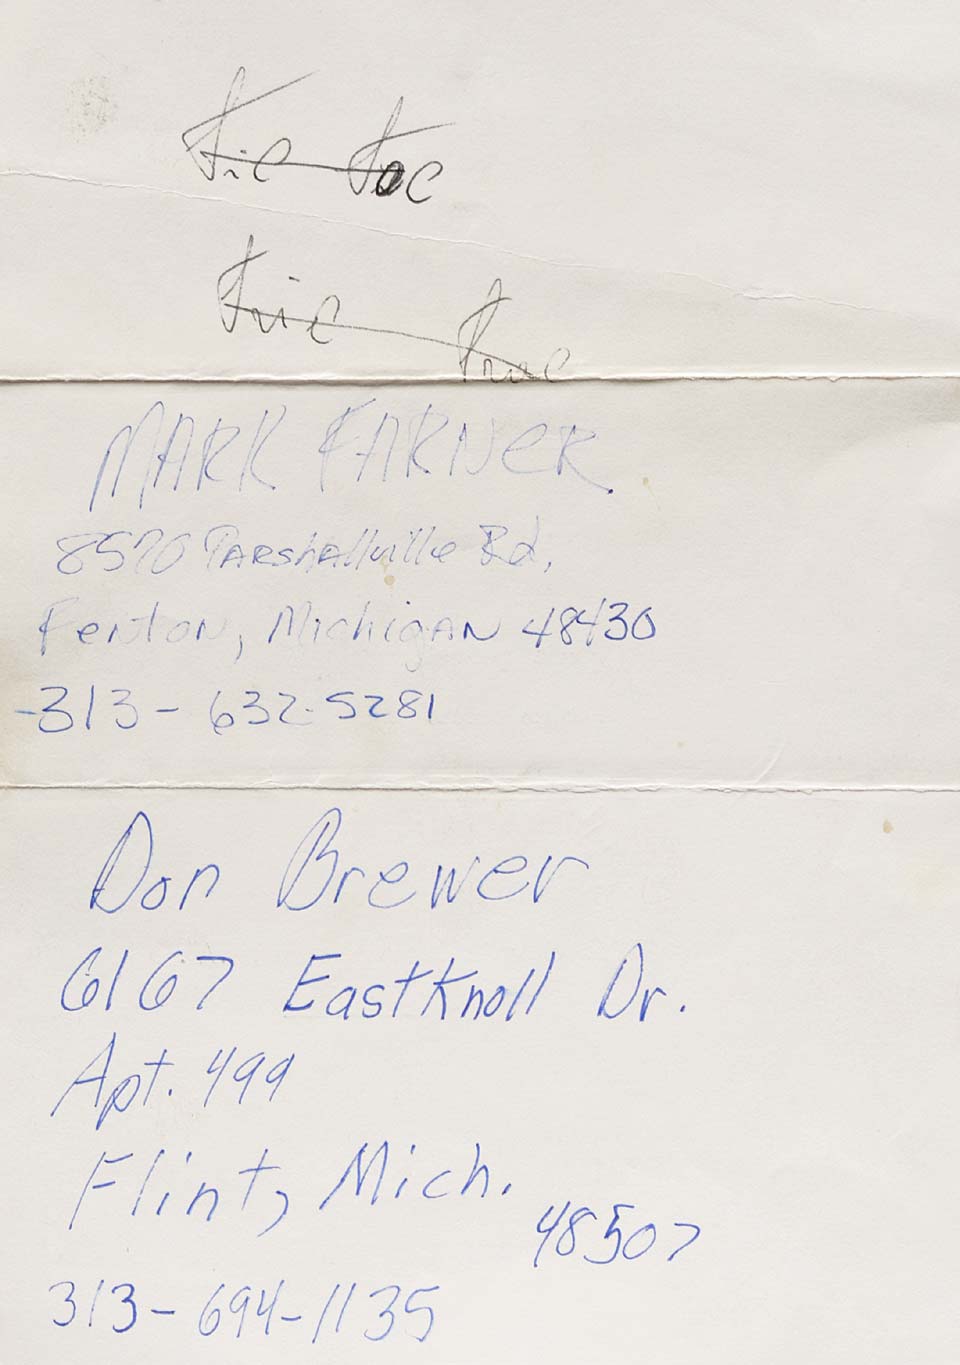 tic toc
MARK FARNER
8570 PARshAllville Rd,
Fenton, MichigAN 48430
-313-632-5281
Don Brewer
6167 Eastknoll Dr.
Apt. 499
Flint, Mich.
48507
313-694-1135